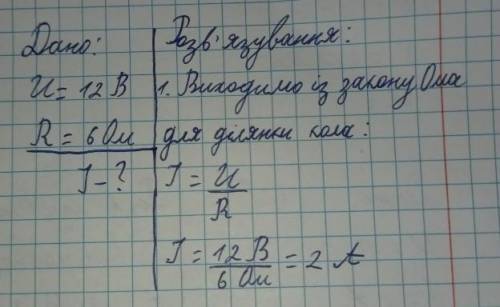 Дано:
U = 12 В
R = 6 Ом
I - ?
Розв'язування:
1. Виходимо із закону Ома
для ділянки кола:
I = U / R
I = 12 В / 6 Ом = 2 А